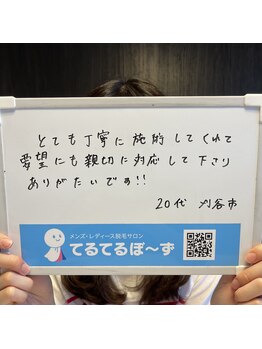 とても丁寧に施術してくれて
要望にも親切に対応して下さり
ありがたいです!!
20代 刈谷市
メンズ・レディース脱毛サロン
てるてるぼ〜ず